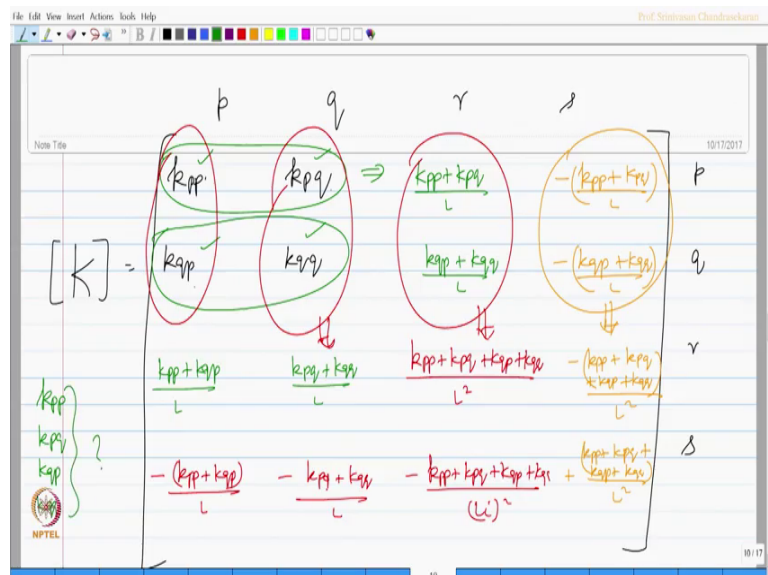 File Edit View Insert Actions Tools Help
Prof. Srinivasan Chandrasekaran
B I
Note Title
10/17/2017
p q r s
kpp kpq ⇒ kpp + kpq / L -(kpp + kpq) / L p
[K] = kqp kqq kqp + kqq / L -(kqp + kqq) / L q
kpp + kqp / L kpq + kqq / L kpp + kpq + kqp + kqq / L² -(kpp + kpq + kqp + kqq) / L² r
-(kpp + kqp) / L - kpq + kqq / L - kpp + kpq + kqp + kqq / (Li)² + (kpp + kpq + kqp + kqq) / L² s
kpp
kpq
kqp
kqq
?
NPTEL
10 / 17